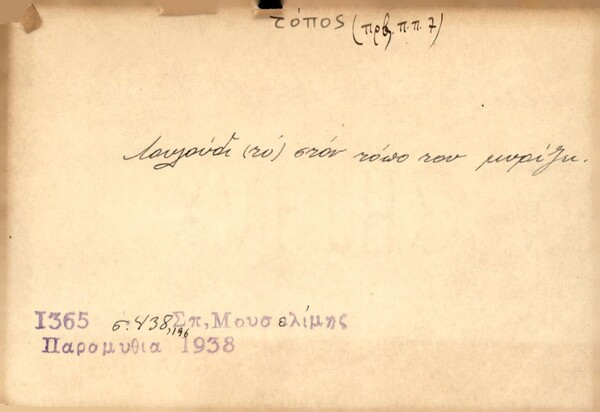 τόπος (πρβ. π.π. 7)
Λουλούδι (τό) στόν τόπο του μυρίζει.
1365 σ. 438, 196 Σπ, Μουσελίμης
Παραμυθια 1938